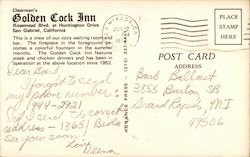 Clearman's
Golden Cock Inn
Rosemead Blvd. at Huntington Drive
San Gabriel, California
This is a view of our cozy waiting room and
bar. The fireplace in the foreground be-
comes a colorful fountain in the summer
months. The Golden Cock Inn features
steak and chicken dinners and has been in
operation at the above location since 1952.
PLACE
STAMP
HERE
POST CARD
ADDRESS
Dear Barb
forgot to send
my phone number -
944-2921
send the correct
address - 13651
See you soon
Love
Barb Ballast
3855 Burton SE
Grand Rapids, MI
49506